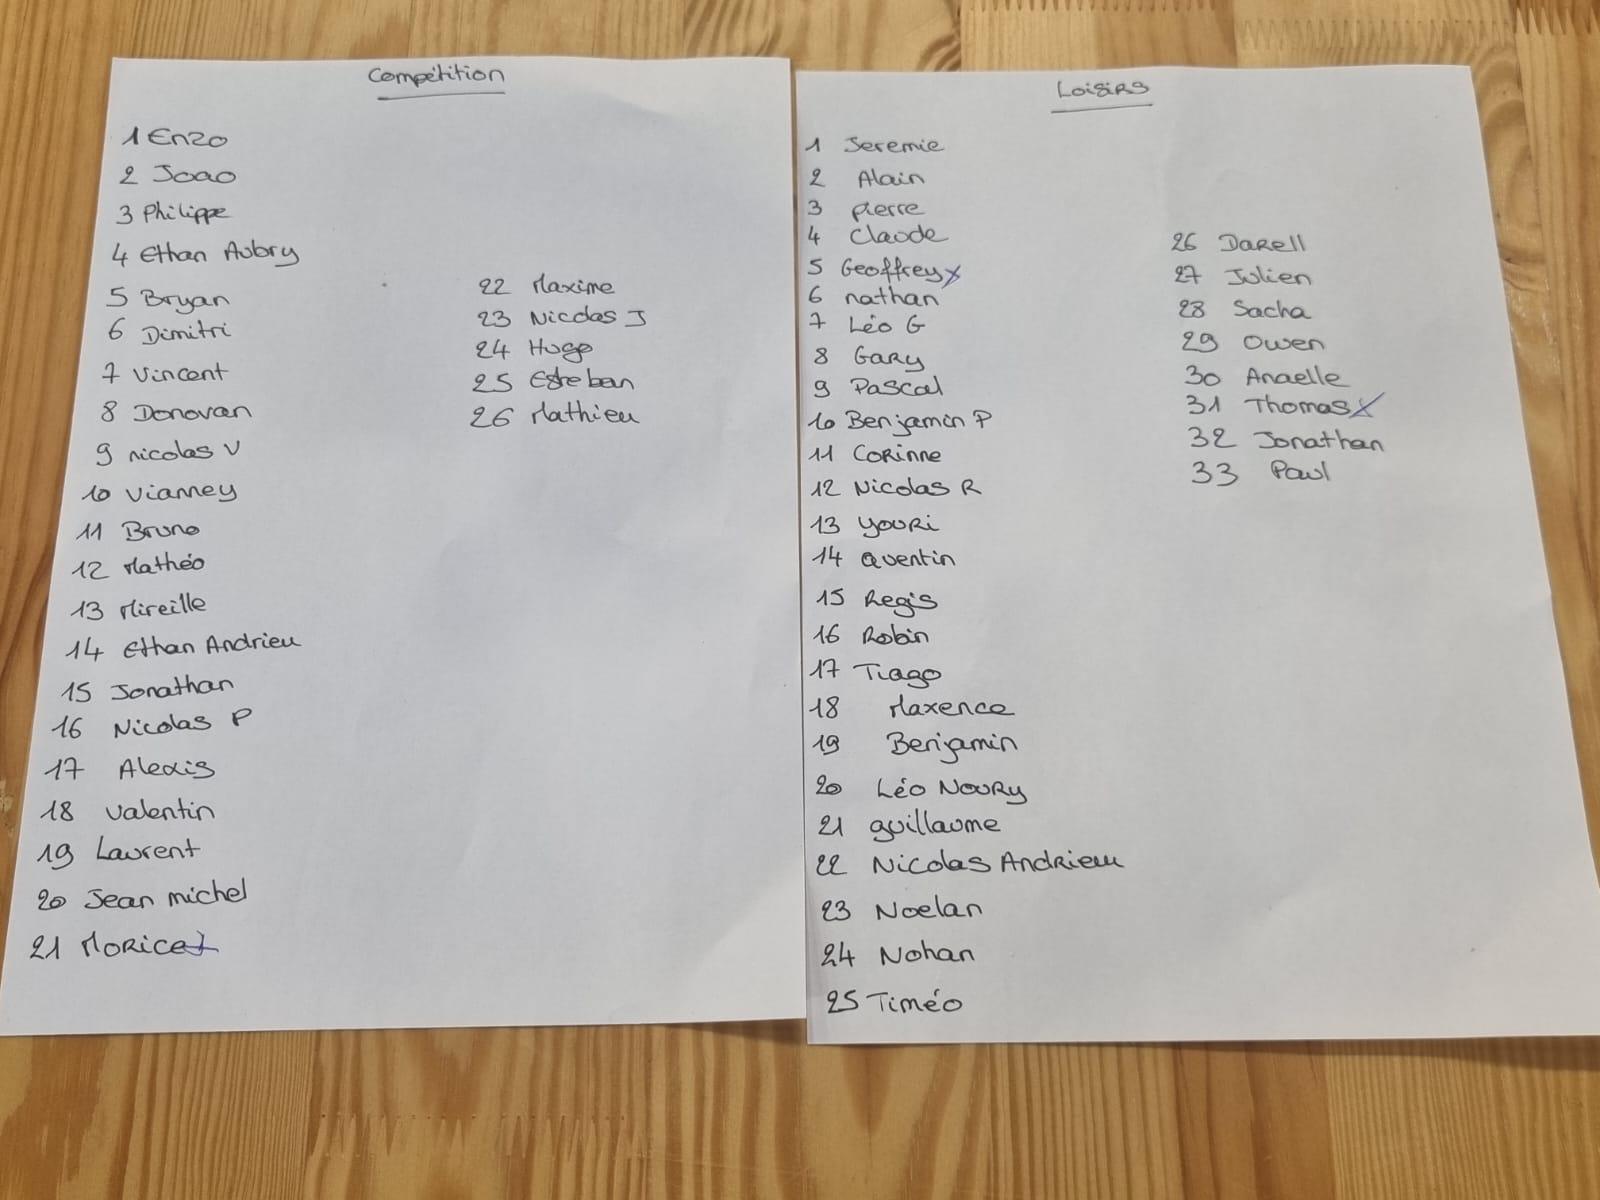 Compétition
1 Enzo
2 Joao
3 Philippe
4 Ethan Aubry
5 Bryan
6 Dimitri
7 Vincent
8 Donovan
9 nicolas V
10 Vianney
11 Bruno
12 Mathéo
13 Mireille
14 Ethan Andrieu
15 Jonathan
16 Nicolas P
17 Alexis
18 Valentin
19 Laurent
20 Jean michel
21 Morice
22 Maxime
23 Nicolas J
24 Hugo
25 Esteban
26 Mathieu
Loisirs
1 Jeremie
2 Alain
3 pierre
4 Claude
5 Geoffrey x
6 nathan
7 Léo G
8 Gary
9 Pascal
10 Benjamin P
11 Corinne
12 Nicolas R
13 Youri
14 Quentin
15 Regis
16 Robin
17 Tiago
18 Maxence
19 Benjamin
20 Léo Noury
21 guillaume
22 Nicolas Andrieu
23 Noelan
24 Nohan
25 Timéo
26 Darell
27 Julien
28 Sacha
29 Owen
30 Anaelle
31 Thomas x
32 Jonathan
33 Paul